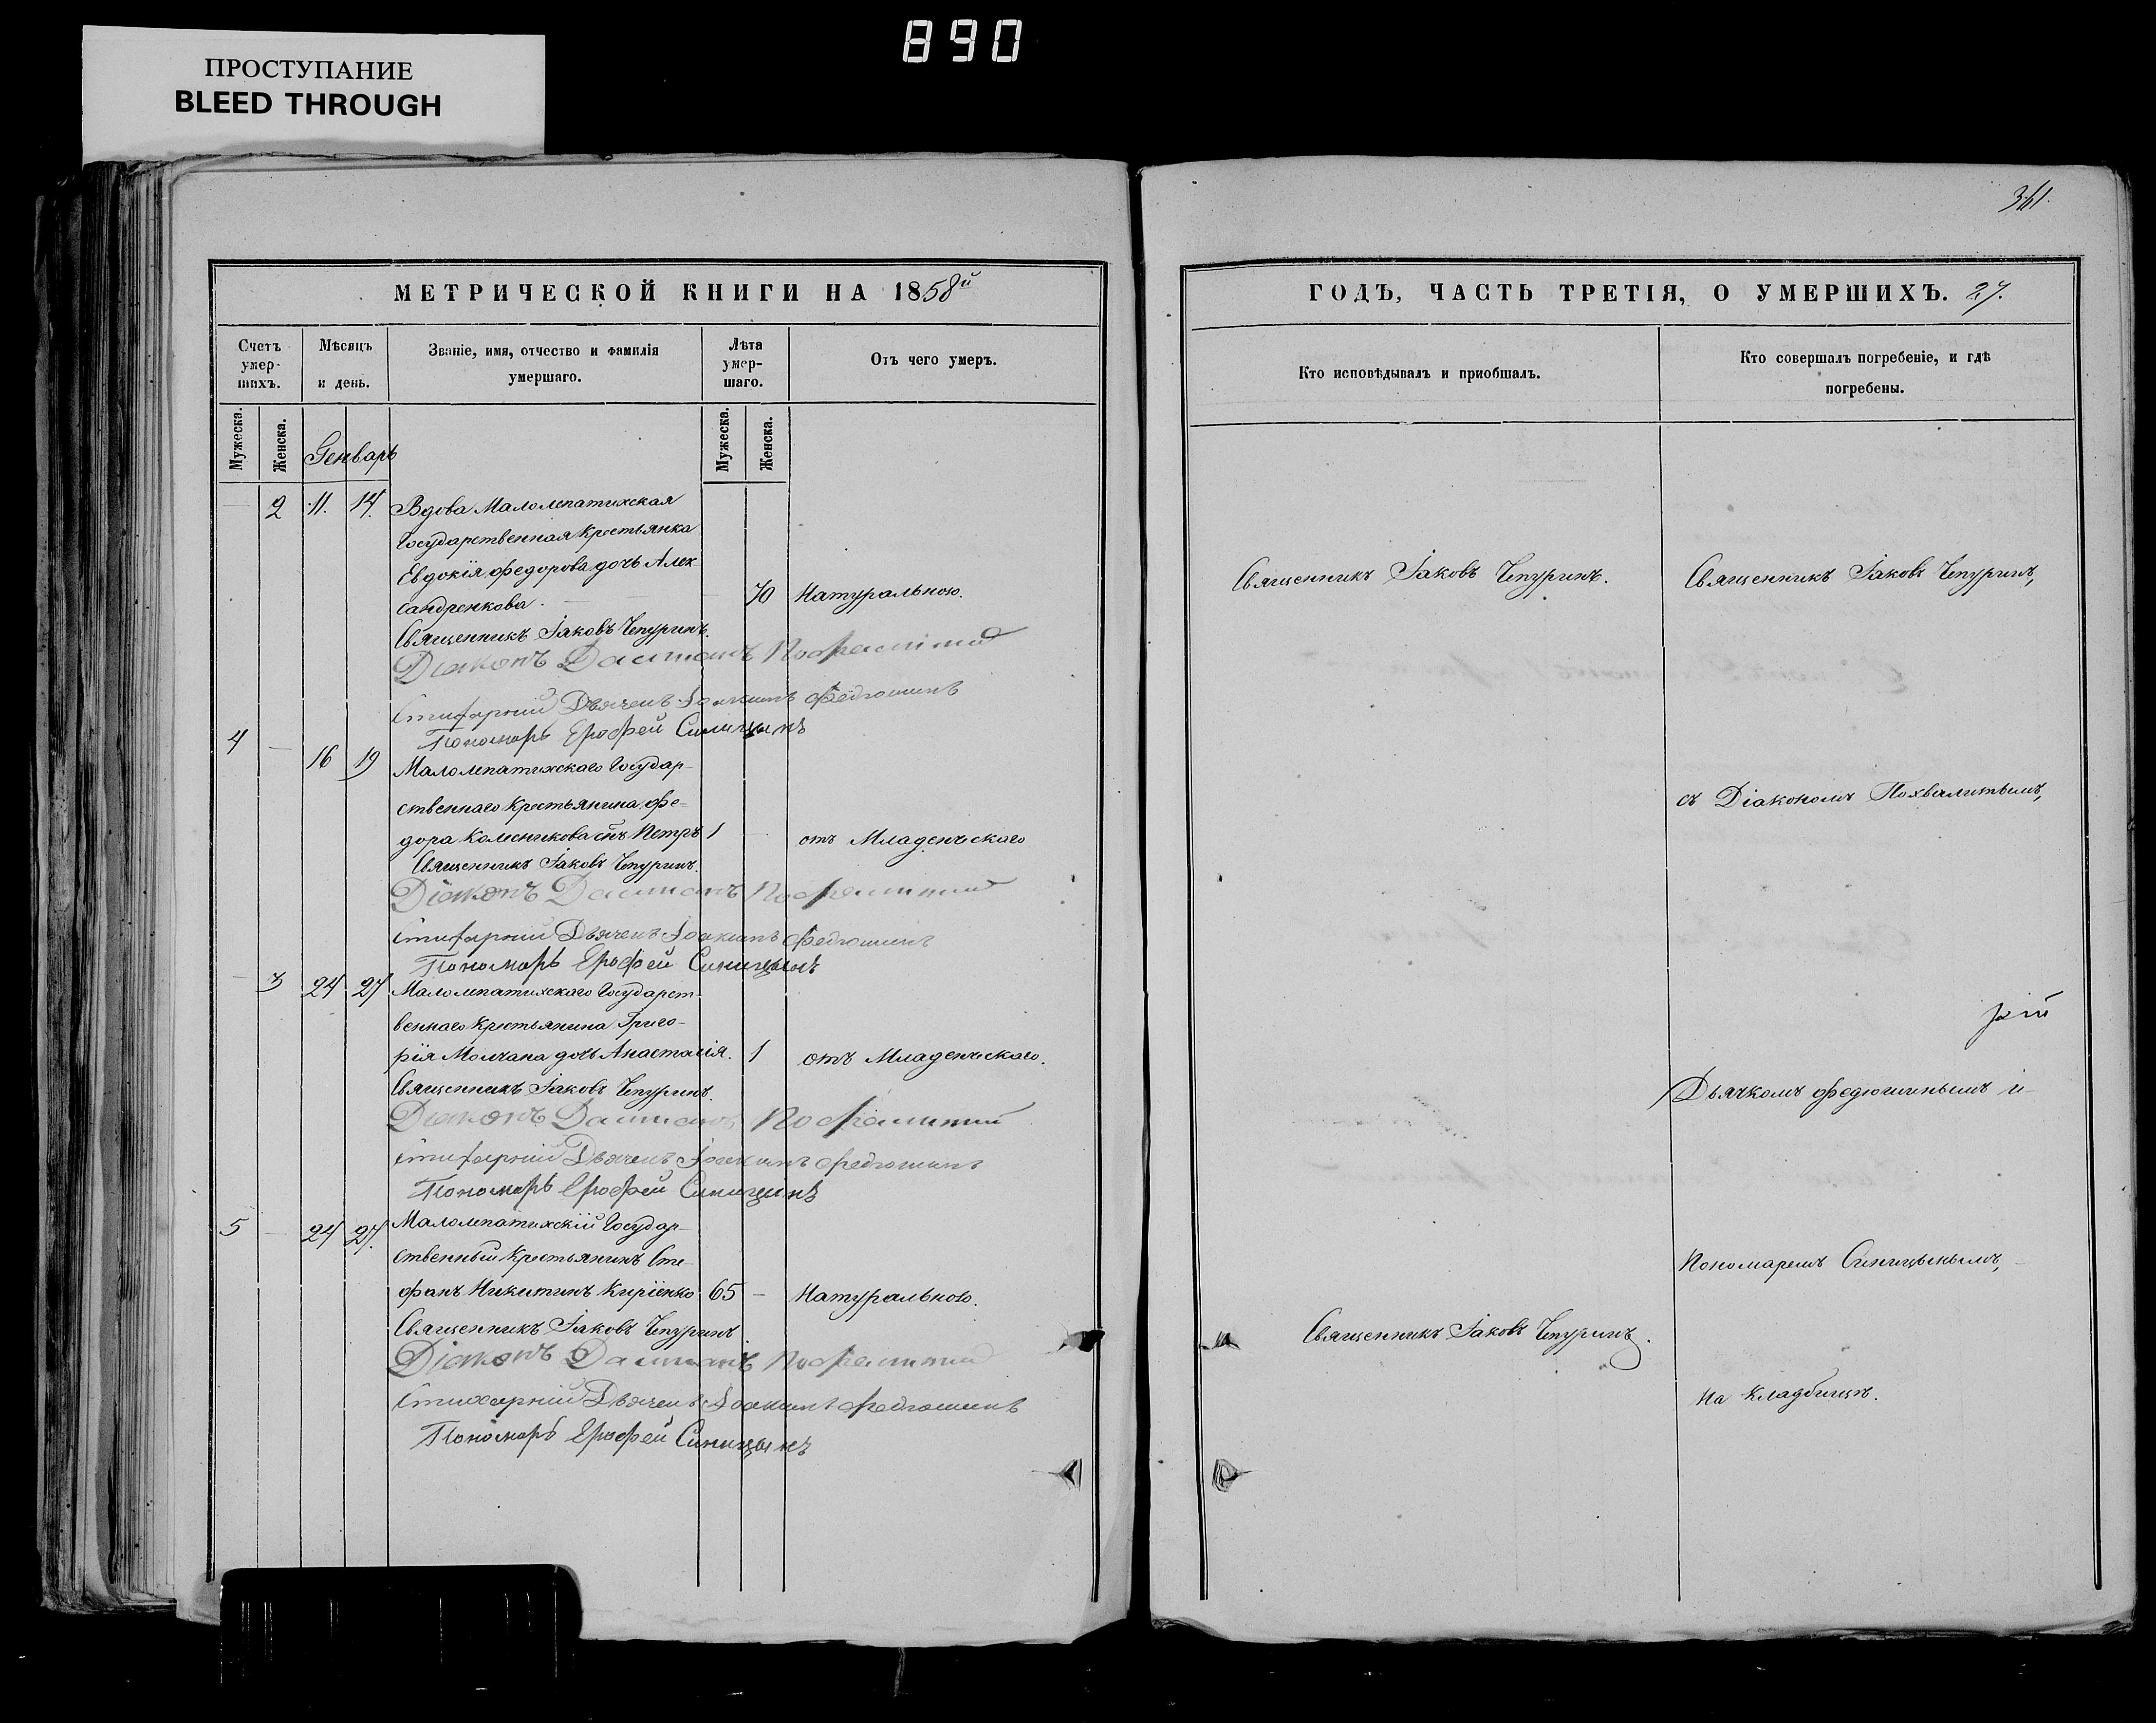 890
ПРОСТУПАНИЕ
BLEED THROUGH
МЕТРИЧЕСКОЙ КНИГИ НА 1858й
Счетъ умер-шихъ.
Мѣсяцъ и день.
Званіе, имя, отчество и фамилія умершаго.
Лѣта умер-шаго.
Отъ чего умеръ.
Мужеска.
Женска.
Генварь
Мужеска.
Женска.
2 11. 14. Вдова Малолепатихская
Государственная Крестьянка
Евдокія Федорова дочь Алек
сандренкова. 70 Натуральною.
Священникъ Іаковъ Чепуринъ.
Діаконъ
Стихарный Дьячекъ Іоакимъ Федюшинъ
Пономарь Ерофей Синицынъ
4 — 16 19 Малолепатихскаго Государ-
ственнаго Крестьянина Фе-
дора Колесникова сынъ Петръ 1 отъ Младенческаго
Священникъ Іаковъ Чепуринъ.
Діаконъ
Стихарный Дьячекъ Іоакимъ Федюшинъ
Пономарь Ерофей Синицынъ
— 3 24 27 Малолепатихскаго Государст-
веннаго Крестьянина Григо-
рія Молчана дочь Анастасія. 1 отъ Младенческаго.
Священникъ Іаковъ Чепуринъ.
Діаконъ
Стихарный Дьячекъ Іоакимъ Федюшинъ
Пономарь Ерофей Синицынъ
5 — 24 27. Малолепатихскій Государ-
ственный Крестьянинъ Сте-
фанъ Никитинъ Киріенко 65 — Натуральною.
Священникъ Іаковъ Чепуринъ
Діаконъ
Стихарный Дьячекъ Іоакимъ Федюшинъ
Пономарь Ерофей Синицынъ
361.
ГОДЪ, ЧАСТЬ ТРЕТІЯ, О УМЕРШИХЪ. 27.
Кто исповѣдывалъ и приобшалъ.
Кто совершалъ погребеніе, и гдѣ
погребены.
Священникъ Іаковъ Чепуринъ.
Священникъ Іаковъ Чепуринъ,
съ Діакономъ Похвалитымъ,
Дьячкомъ Федюшинымъ и
Пономаремъ Синицынымъ,
Священникъ Іаковъ Чепуринъ.
на кладбищѣ.